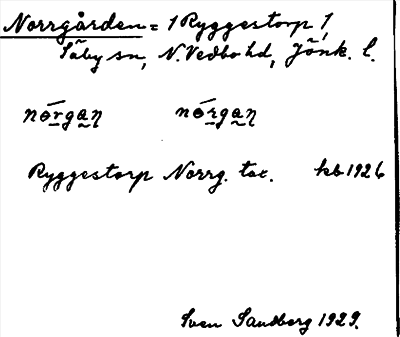 Norrgården = 1 Ryggestorp 1,
Säby sn, N. Vedbo hd, Jönk. l.
nórgan nórgan
Ryggestorp Norrg. tax. kb 1926
Sven Sandberg 1929.